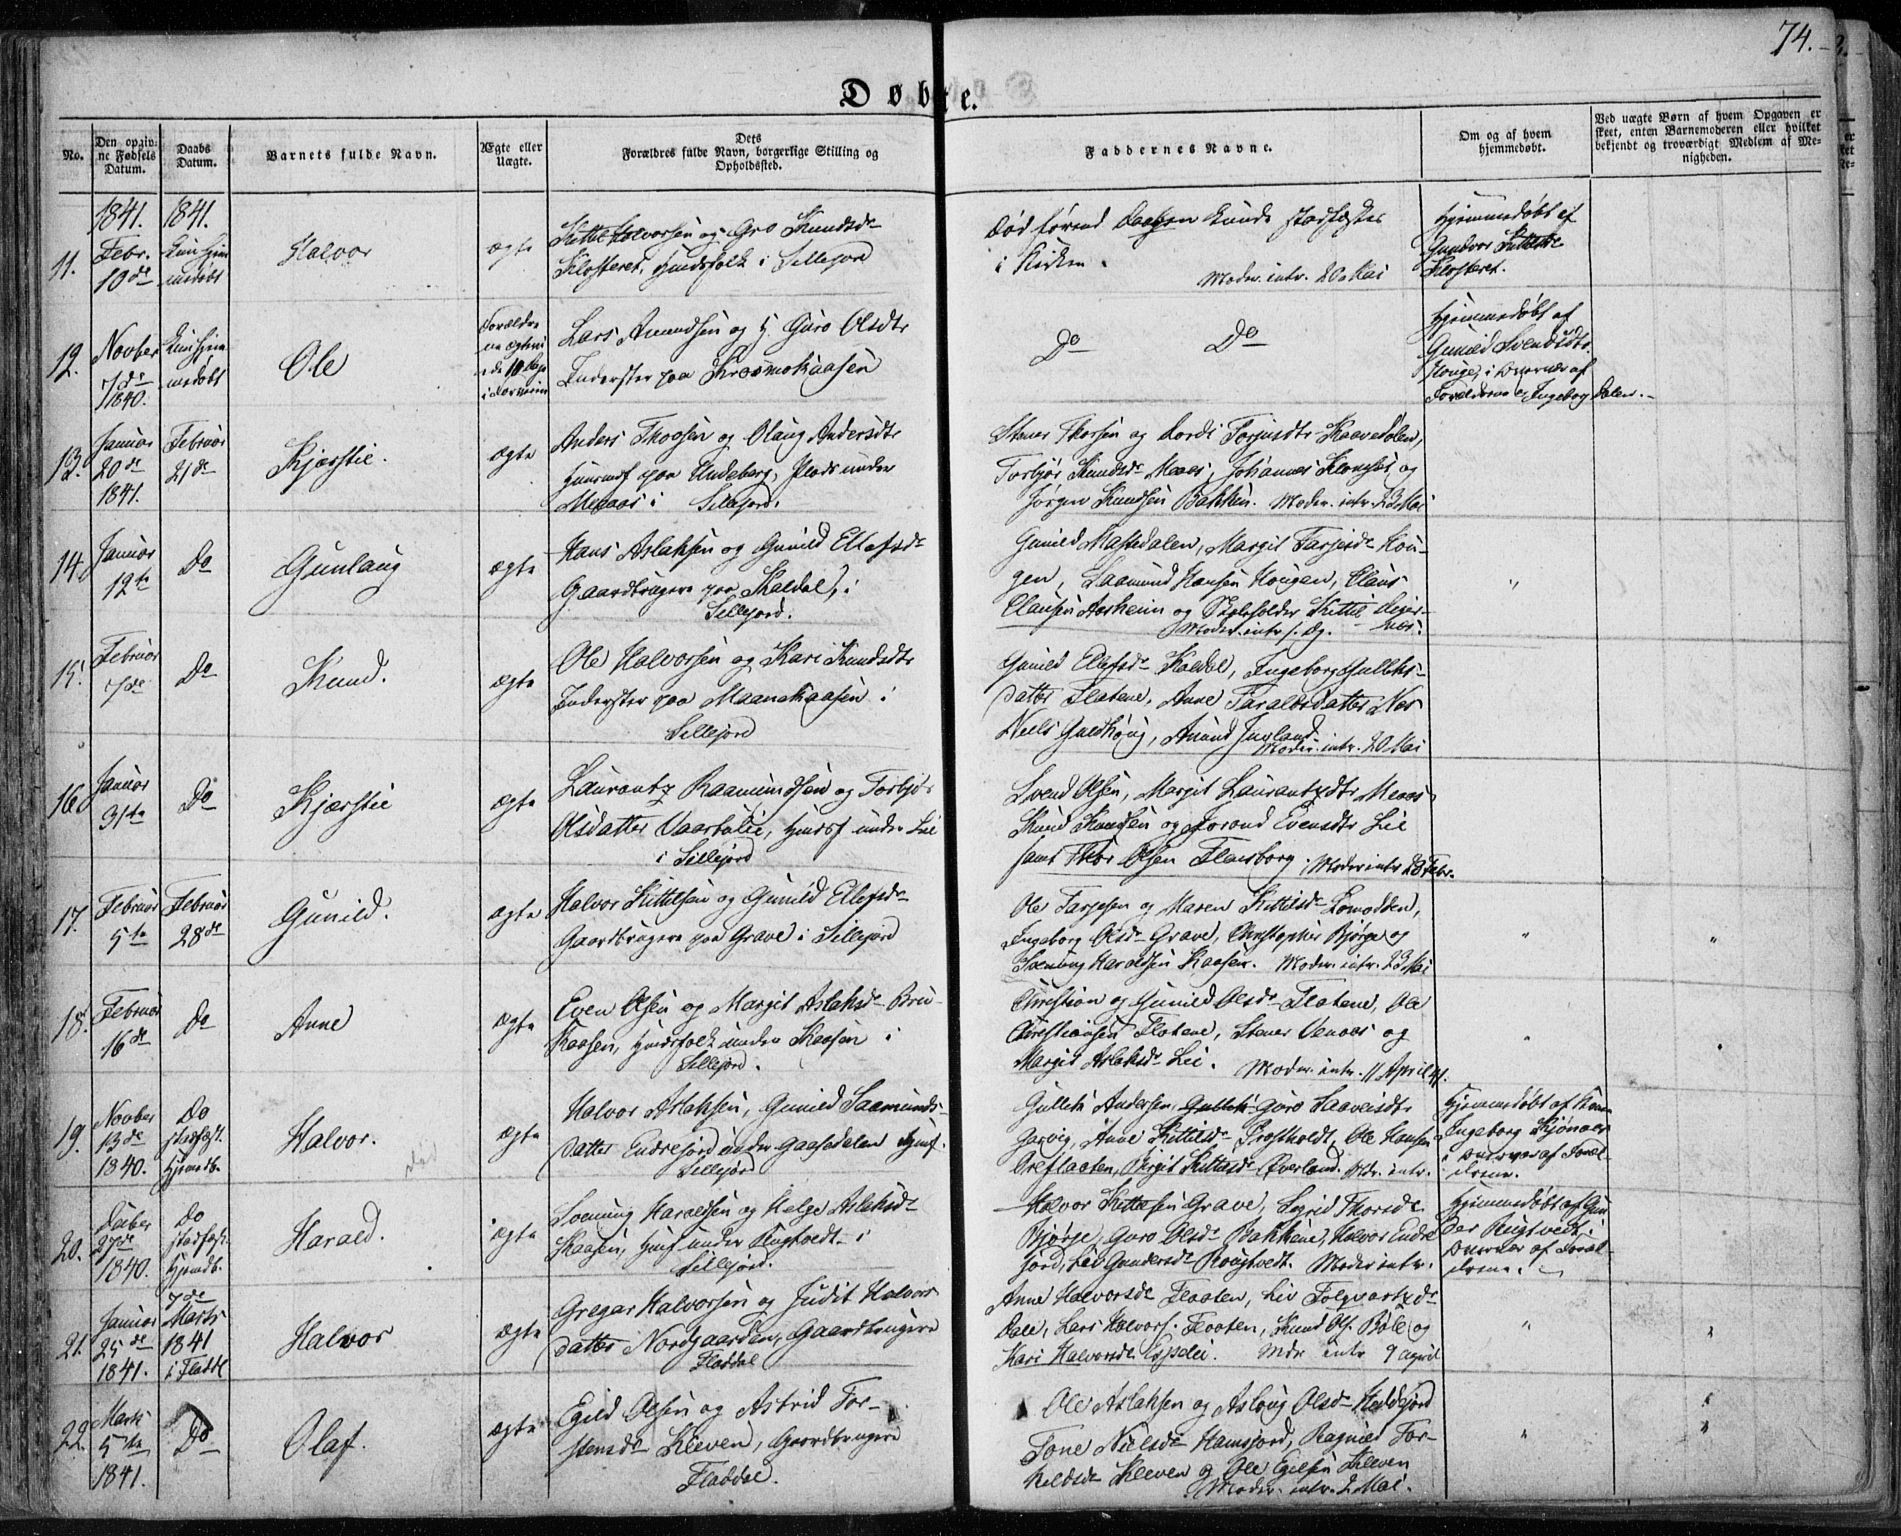 74.
Døbte.
No.
Den opgivne Fødsels Datum.
Daabs Datum.
Barnets fulde Navn.
Ægte eller Uægte.
Dets Forældres fulde Navn, borgerlige Stilling og Opholdssted.
Faddernes Navne.
Om og af hvem hjemmedøbt.
Ved uægte Børn af hvem Opgaven er skeet, enten Barnemoderen eller hvilket bekjendt og troværdigt Medlem af Menigheden.
1841. 1841.
11. Febr. 10de
Kun hjemmedøbt
Halvor
ægte
Kittil Halvorsen og Gro Knudsdr
Klosteret, Huusfolk i Sillejord
Død førend Daaben kunde stadfæstes
i Kirken.
Moder. intr. 20 Mai
Hjemmedøbt af
Gundvor
Klosteret.
12. Novber 7de 1840.
Kun hjemmedøbt
Ole
Lars Amundsen og H. Guro Olsdtr
Inderster paa Kroomokaasen
Do Do
Hjemmedøbt af
Gunild Svendsdtr
Houge, i Overvær af
Forældrene og Ingeborg Dalen.
13. Januar 20de 1841.
Februar 21de
Kjærstie.
ægte
Anders Thorsen og Olaug Andersdtr
Huusmf paa Undeberg, Plads under
Meaas i Sillejord.
Stener Thorsen og Torjusdtr Kaavedalen,
Torbjør Knudsdr Meaas, Johannes og
Jørgen Knudsen Bakken. Moder. intr. 23 Mai
14. Januar 12te
Do
Gunlaug
ægte
Hans Aslaksen og Gunild Ellefsdr
Gaardbrugere paa Kaldal, i
Sillejord.
Gunild Mastedalen, Margit Tarjeisdr Hougen,
Saamund Hansen Hougen, Claus
Clausen Aasheim og Kittil
Moder. intr. s. Dg.
15. Februar 7de
Do
Knud.
ægte
Ole Halvorsen og Kari Knudsdtr
Inderster paa Maanekaasen i
Sillejord
Gunild Ellefsdr Kaldal, Ingeborg Gulleksdatter
Flatene, Anne Taraldsdatter Næs
Niels , Amund Juvland
Moder. intr. 20 Mai
16. Januar 31te
Do
Kjærstie
ægte
Laurantz Raamundsen og Torbjør
Olsdatter Vaarbalie, Huusf under Lie
i Sillejord
Svend Olsen, Margit Laurantzdtr Meaas
Knud Knudsen og Jorond Evensdtr Lie
samt Thor Olsen Flaasborg. Moder intr 28 Febr.
17. Februar 5te
Februar 28de
Gunild.
ægte
Halvor Kittilsen og Gunild Ellefsdr
Gaardbrugere paa Grave i Sillejord
Ole Tarjesen og Maren Kittilsdr Lomodden,
Ingeborg Olsdr Grave, Christopher Bjørge og
Svenung Haraldsen Kaasen. Moder. intr. 23 Mai
18. Februar 16de
Do
Anne
ægte
Even Olsen og Margit Aslaksdr Brukaasen,
Huusfolk under Kaasen i
Sillejord.
Christian og Gunild Olsdr Flatene, Ole
Christiansen Flatene, Stener Venaas og
Margit Aslaksdr Lie. Moder. intr. 11 April 41.
19. Novber 13de 1840.
Do stadfæst. Hjemdb.
Halvor.
ægte
Halvor Aslaksen, Gunild Saamundsdatter
Endrejord under Gaasedalen Huusf.
Sillejord
Gullek Andersen, Guro Saaveisdtr
Garvig, Anne Kittilsdr Prostholdt, Ole Hansen
Grefsaaten, Birgit Kittilsdr Øverland. Mdr. intr.
Hjemmedøbt af
Ingeborg
i Overvær af Forældrene.
20. Dcber 27de 1840.
Do stadfæst. Hjemdb.
Harald.
ægte
Svenung Haraldsen og Helge Aslaksdr
Kaasen, Huusf under Rugtvedt i
Sillejord.
Halvor Kittilsen Grave, Sigrid Thorsdr
Bjørge, Guro Olsdr Bakkene, Halvor Endrejord,
Liv Gundersdr Rougtvedt. Moder intr.
Hjemmedøbt af Gundar
Rugtvedt i
Overvær af Forældrene.
21. Januar 25de 1841.
7de Marts 1841 i Fladdl
Halvor
ægte
Gregar Halvorsen og Judit Halvorsdatter
Nordgaarden, Gaardbrugere
Fladdal
Anne Halvorsdr Flaaten, Liv Folqvartzdr
Dale, Lars Halvors. Flaaten, Knud Ols. Bøle og
Kari Halvorsdr Espelie. Mdr intr 9 april
22. Marts 5te 1841.
Do
Olaf.
ægte
Egild Olsen og Astrid Torstensdr
Kleven, Gaardbrugere
Fladdal.
Ole Aslaksen og Aslaug Olsdr Heddejord
Tone Nielsdr Hamsjord, Ragnild Torkildsdr
Kleven og Ole Egilsen Kleven
Moder. intr. 2 Mai.